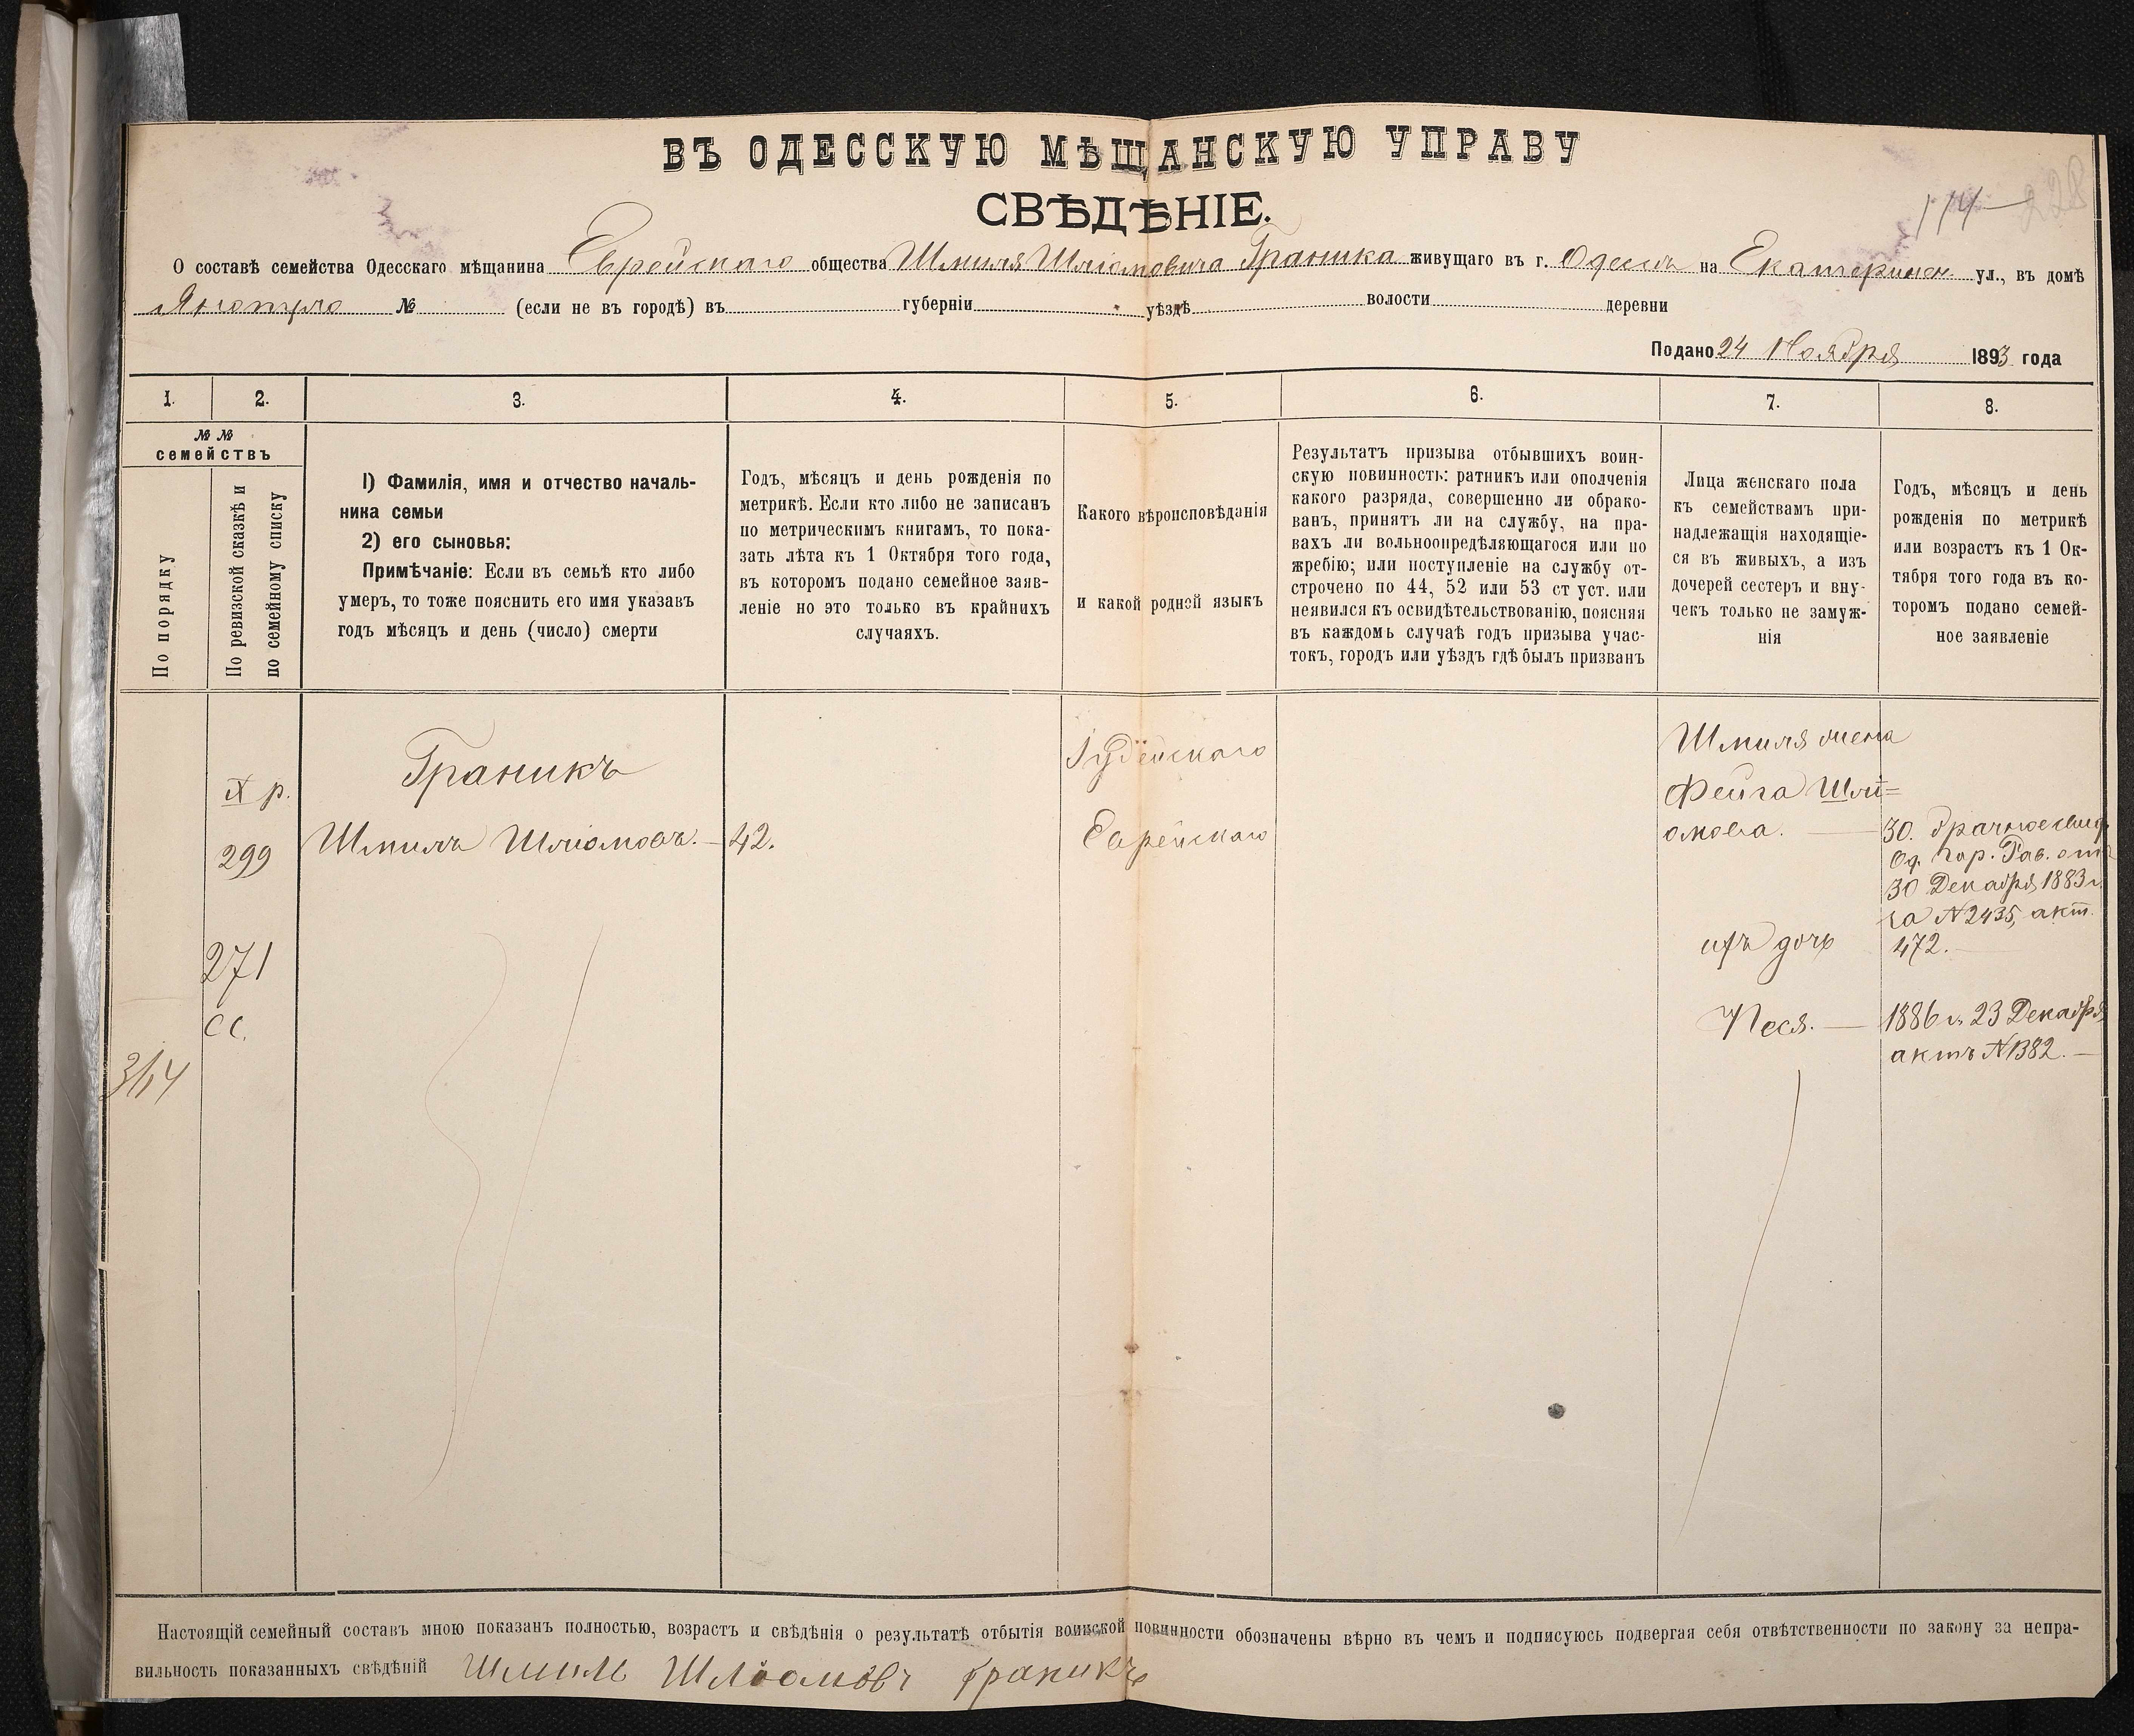 ВЪ ОДЕССКУЮ МѢЩАНСКУЮ УПРАВУ
СВѢДѢНІЕ.
114 228
О составѣ семейства Одесскаго мѣщанина Еврейскаго общества Шмиля Шліомовича Граника живущаго въ г. Одессѣ на Екатеринен. ул., въ домѣ
Янопуло № (если не въ городѣ) въ губерніи уѣздѣ волости деревни
Подано 24 Ноября 1893 года
1. 2. 3. 4. 5. 6. 7. 8.
№ №
семействъ
По порядку
По ревизской сказкѣ и
по семейному списку
1) Фамилія, имя и отчество началь-
ника семьи
2) его сыновья:
Примѣчаніе: Если въ семьѣ кто либо
умеръ, то тоже пояснить его имя указавъ
годъ мѣсяцъ и день (число) смерти
Годъ, мѣсяцъ и день рожденія по
метрикѣ. Если кто либо не записанъ
по метрическимъ книгамъ, то пока-
зать лѣта къ 1 Октября того года,
въ которомъ подано семейное заяв-
леніе но это только въ крайнихъ
случаяхъ.
Какого вѣроисповѣданія
и какой родной языкъ
Результатъ призыва отбывшихъ воин-
скую повинность: ратникъ или ополченія
какого разряда, совершенно ли обрако-
ванъ, принятъ ли на службу, на пра-
вахъ ли вольноопредѣляющагося или по
жребію; или поступленіе на службу от-
строчено по 44, 52 или 53 ст уст. или
неявился къ освидѣтельствованію, поясняя
въ каждомъ случаѣ годъ призыва учас-
токъ, городъ или уѣздъ гдѣ былъ призванъ
Лица женскаго пола
къ семействамъ при-
надлежащія находящіе-
ся въ живыхъ, а изъ
дочерей сестеръ и вну-
чекъ только не замуж-
нія
Годъ, мѣсяцъ и день
рожденія по метрикѣ
или возрастъ къ 1 Ок-
тября того года въ ко-
торомъ подано семей-
ное заявленіе
X р.
299
271
СС.
314
Граникъ
Шмиль Шліомовъ. 42.
Іудейскаго
Еврейскаго
Шмиля жена
Фейга Шлі=
омова.
30. брачное свид.
Од. Гор. Рав. отъ
30 Декабря 1883 г.
за № 2435, акт.
472.
ихъ дочь
Песя. 1886 г. 23 Декабря
актъ № 1382.
Настоящій семейный составъ мною показанъ полностью, возрастъ и свѣдѣнія о результатѣ отбытія воинской повинности обозначены вѣрно въ чемъ и подписуюсь подвергая себя отвѣтственности по закону за непра-
вильность показанныхъ свѣдѣній Шмиль Шліомовъ Граникъ